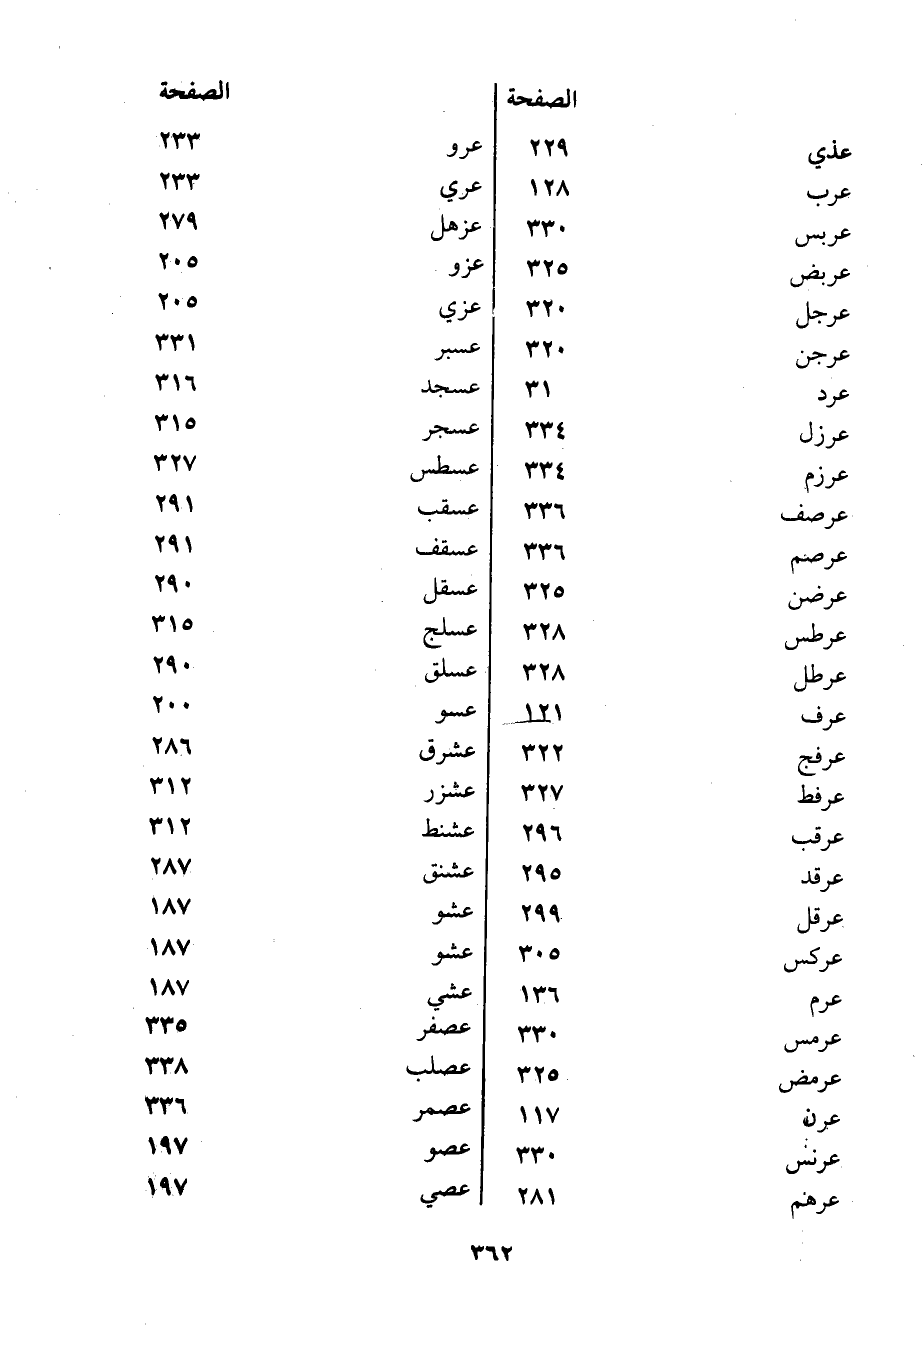 الصفحة
عذي ٢٢٩
عرب ١٢٨
عربس ٣٣٠
عربض ٣٢٥
عرجل ٣٢٠
عرجن ٣٢٠
عرد ٣١
عرزل ٣٣٤
عرزم ٣٣٤
عرصف ٣٣٦
عرصم ٣٣٦
عرضن ٣٢٥
عرطس ٣٢٨
عرطل ٣٢٨
عرف ١٢١
عرفج ٣٢٢
عرفط ٣٢٧
عرقب ٢٩٦
عرقد ٢٩٥
عرقل ٢٩٩
عركس ٣٠٥
عرم ١٣٦
عرمس ٣٣٠
عرمض ٣٢٥
عرن ١١٧
عرنس ٣٣٠
عرهم ٢٨١
الصفحة
عرو ٢٣٣
عري ٢٣٣
عزهل ٢٧٩
عزو ٢٠٥
عزي ٢٠٥
عسبر ٣٣١
عسجد ٣١٦
عسجر ٣١٥
عسطس ٣٢٧
عسقب ٢٩١
عسقف ٢٩١
عسقل ٢٩٠
عسلج ٣١٥
عسلق ٢٩٠
عسو ٢٠٠
عشرق ٢٨٦
عشزر ٣١٢
عشنط ٣١٢
عشنق ٢٨٧
عشو ١٨٧
عشو ١٨٧
عشي ١٨٧
عصفر ٣٣٥
عصلب ٣٣٨
عصمر ٣٣٦
عصو ١٩٧
عصي ١٩٧
٣٦٢